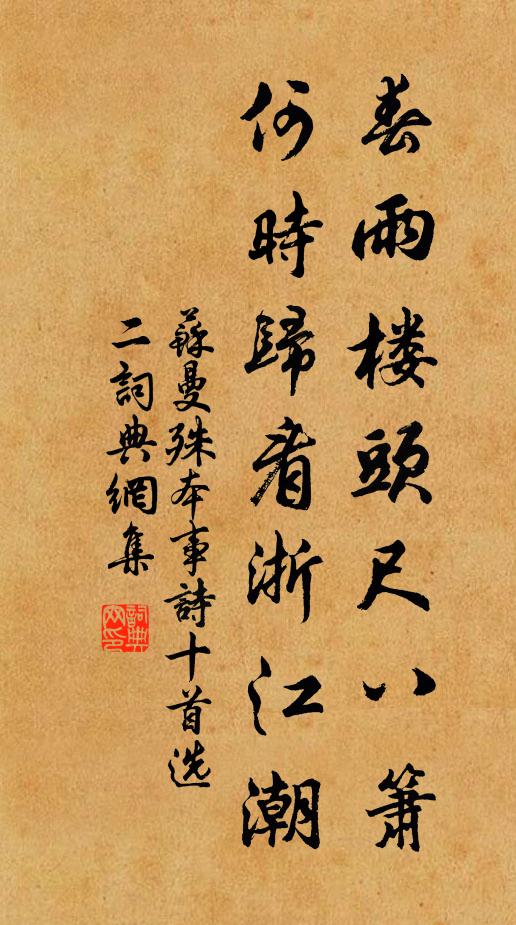 春雨楼頭尺八簫
何時歸看浙江潮
蘇曼殊本事詩十首选
二詞典網集
詞典網印